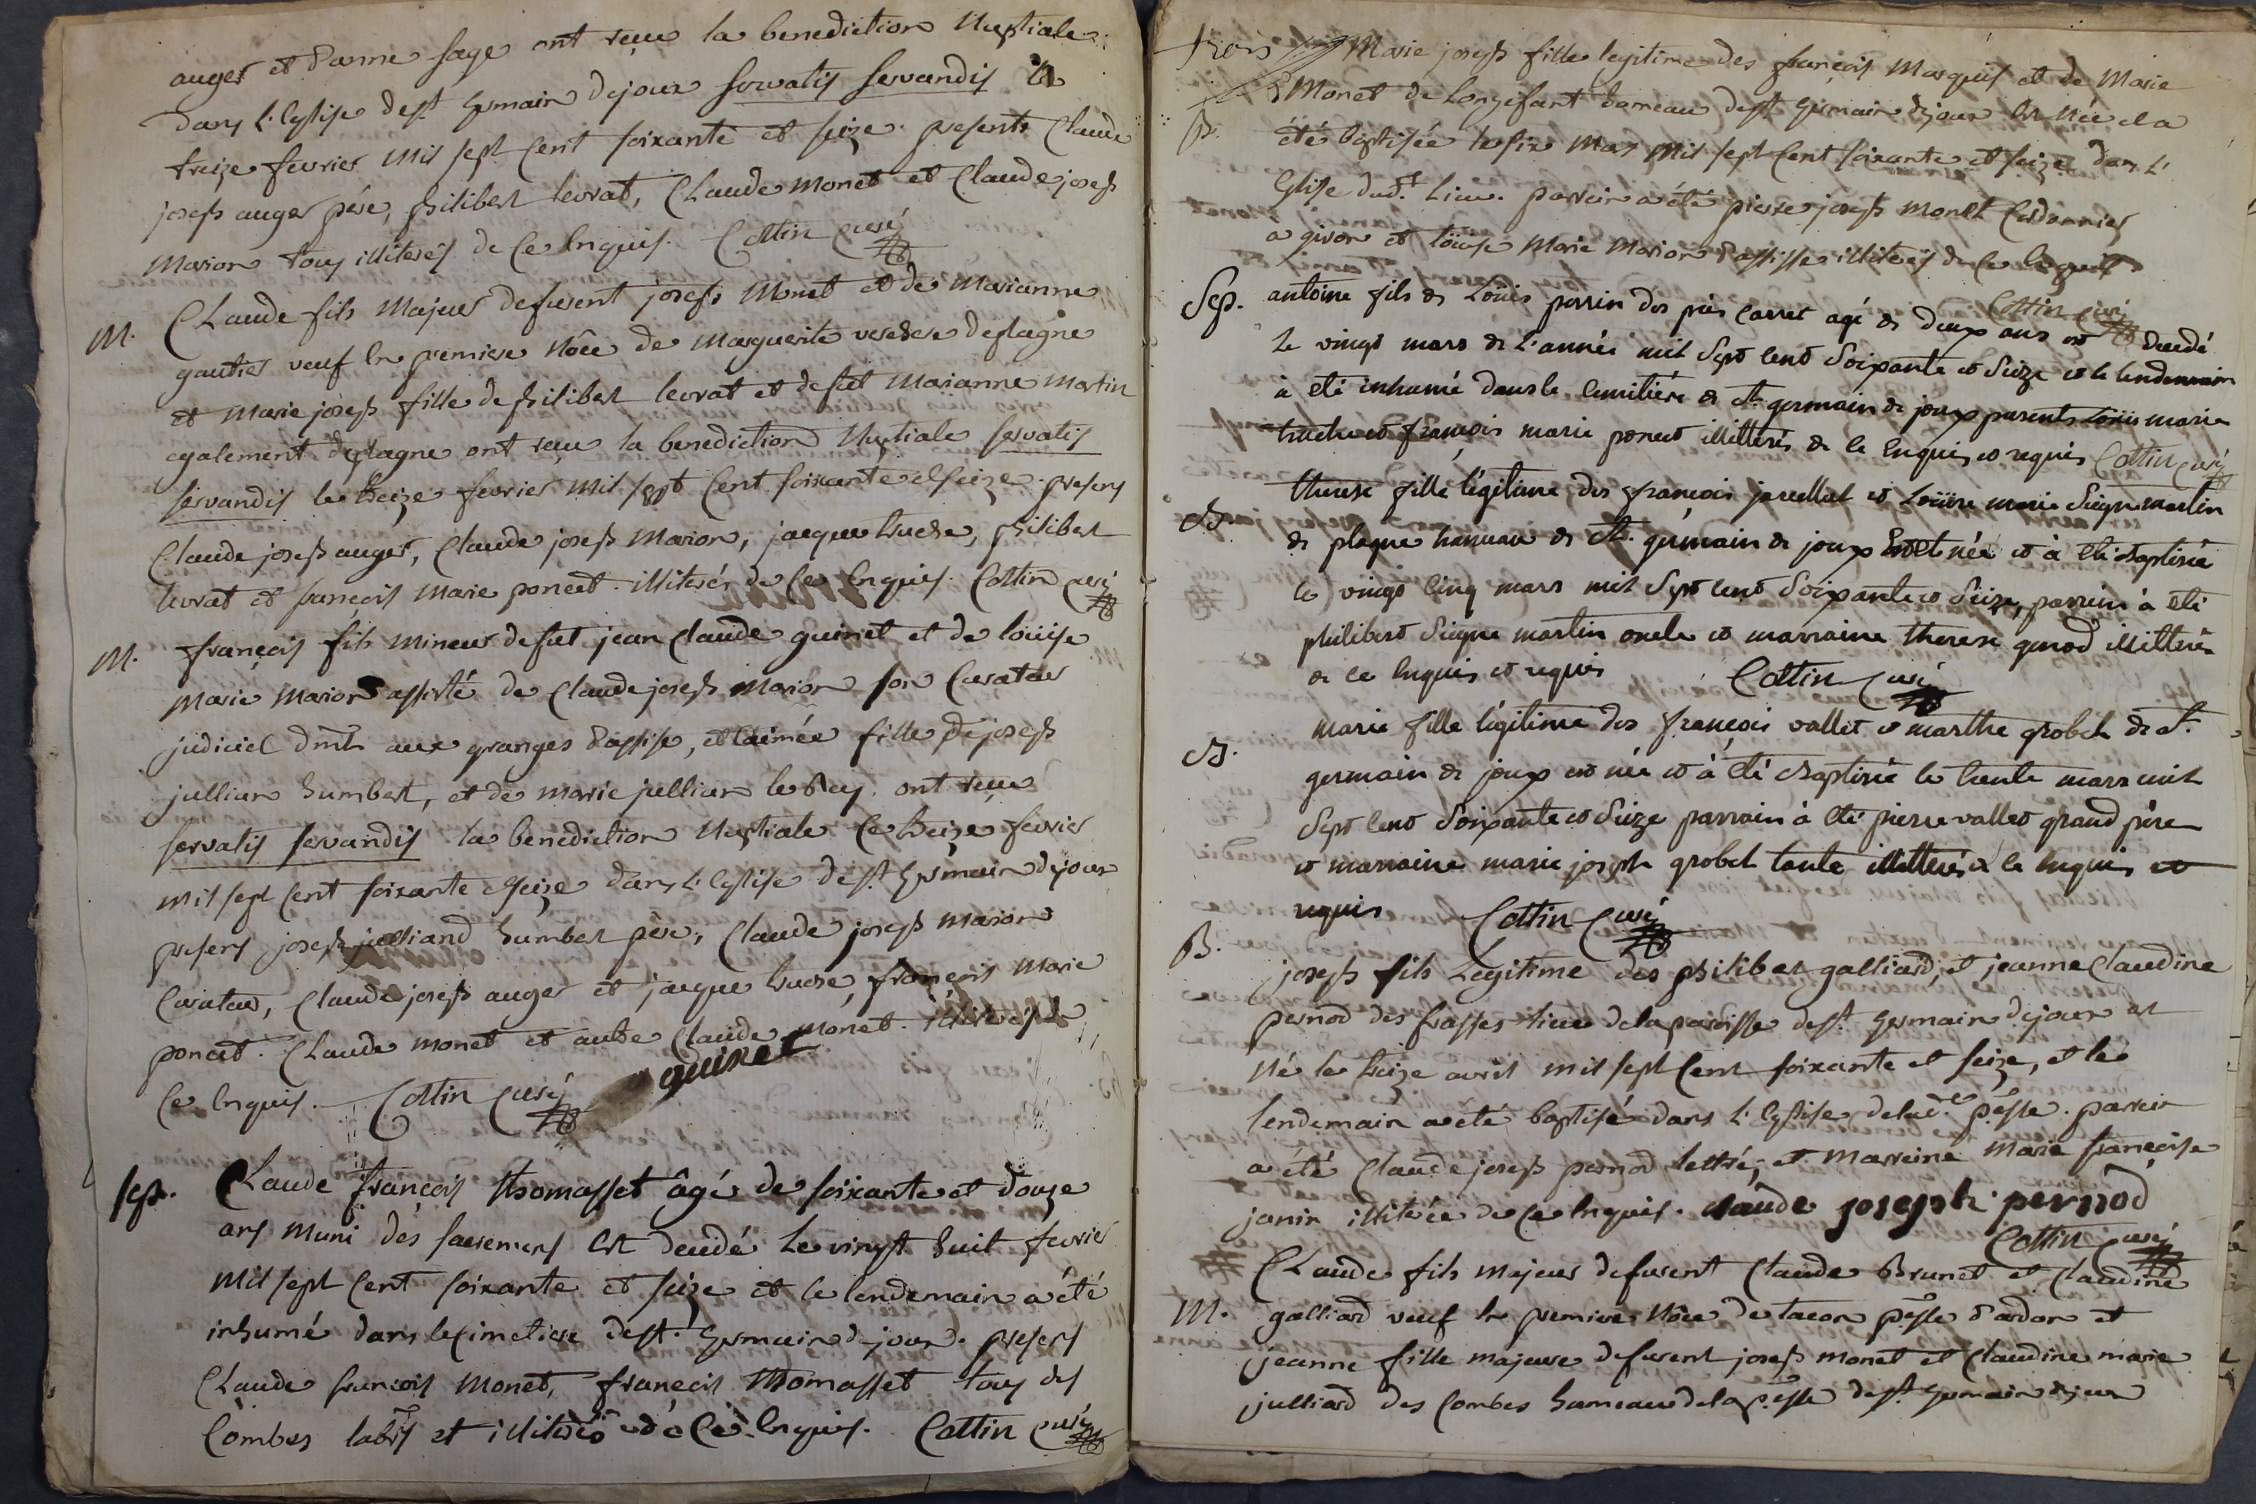 auger et d'anne sage ont reçu la benediction Nuptiale
dans l'Eglise de st germain dejoux servatis servandis le
treize fevrier mil sept cent soixante et seize. presents Claude
joseph auger père, philibert levrat, Claude monet et Claude joseph
marion tous illiterés de ce Enquis. Cottin curé
M. Claude fils majeur defunt joseph Monet et de Marianne
gautier veuf en premiere Nôce de Marguerite deplagne
et Marie joseph fille de philibert levrat et defut Marianne Martin
egalement deplagne ont reçu la benediction Nuptiale servatis
servandis le treize fevrier mil sept Cent soixante et seize. presens
Claude joseph auger, Claude joseph Marion, jacque truche, philibert
levrat et françois Marie poncet. illiterés de ce Enquis. Cottin curé
M. françois fils mineur defut jean Claude guinet et de loüise
Marie Marion assisté de Claude joseph Marion son Curateur
judiciel aux granges d'assise, et aimée fille de joseph
jullian humbert, et de marie jullian le Roy. ont reçu
servatis servandis la benediction Nuptiale ce treize fevrier
mil sept Cent soixante et seize dans l'Eglise de st germain dejoux
presens joseph julliand humbert père, Claude joseph marion
Curateur, Claude joseph auger et jacque truche, françois Marie
poncet. Claude monet et autre Claude Monet. illiterés de
ce Enquis. Cottin curé guinet
sep. Claude françois thomasset âgé de soixante et douze
ans muni des sacremens Est decedé Le vingt huit fevrier
mil sept Cent soixante et seize et le lendemain a été
inhumé dans le cimetiere de st. germain dejoux. presens
Claude françois Monet, françois thomasset tous des
Combes et illiterés de ce Enquis. Cottin curé
trois Marie joseph fille legitime des françois Marquis et de Marie
Monet de Longefant hameau de st germain dejoux Est Née et a
B. été baptisée le six Mars mil sept Cent soixante et seize dans l'
Eglise dud.t Lieu. parrein a été pierre joseph monet Cordonnier
a giron et loüise Marie Marion d'assisse illiterés de ce Enquis
Cottin curé
Sep. antoine fils de Loüis perrin des près carret agé de deux ans est decedé
Le vingt mars de L'année mil Sept Cent Soixante et Seize et le lendemain
à eté inhumé dans le cimitière de st. germain de joux presents Loüis marie
truche et françois marie poncet illitterés de ce Enquis et requis Cottin curé
B. therese fille légitime des françois javellat et Loüise marie Seigne martin
de plagne hameau de st. germain de joux Est née et à eté Baptisée
le vingt Cinq mars mil Sept Cent Soixante et Seize, parrein à été
philibert Seigne martin oncle et marraine therese genod illitterés
de ce Enquis et requis Cottin curé
B. marie fille légitime des françois vallet et marthe grobel de st.
germain de joux est née et à été Baptisée le trente mars mil
Sept Cent Soixante et Seize parrain à été pierre vallet grand père
et marraine marie joseph grobel tante illitterés de ce Enquis et
requis. Cottin curé
B. joseph fils Legitime des philibert galliard, et jeanne Claudine
pernod des frasses Lieu de la paroisse de st. germain dejoux est
Né le treize avril mil sept Cent soixante et seize, et le
lendemain a été baptisé dans l'Eglise de lad.e psse. parrein
a été Claude joseph pernod lettré, et Marreine Marie françoise
janin illiterée de ce Enquis. claude joseph pernod
Cottin curé
Claude fils majeur defunt Claude Brunet et Claudine
M. galliard veuf en premiere Nôce de tacon psse d'ardon et
jeanne fille majeure defunt joseph monet et Claudine marie
julliard des Combes hameau de la psse de st germain dejoux